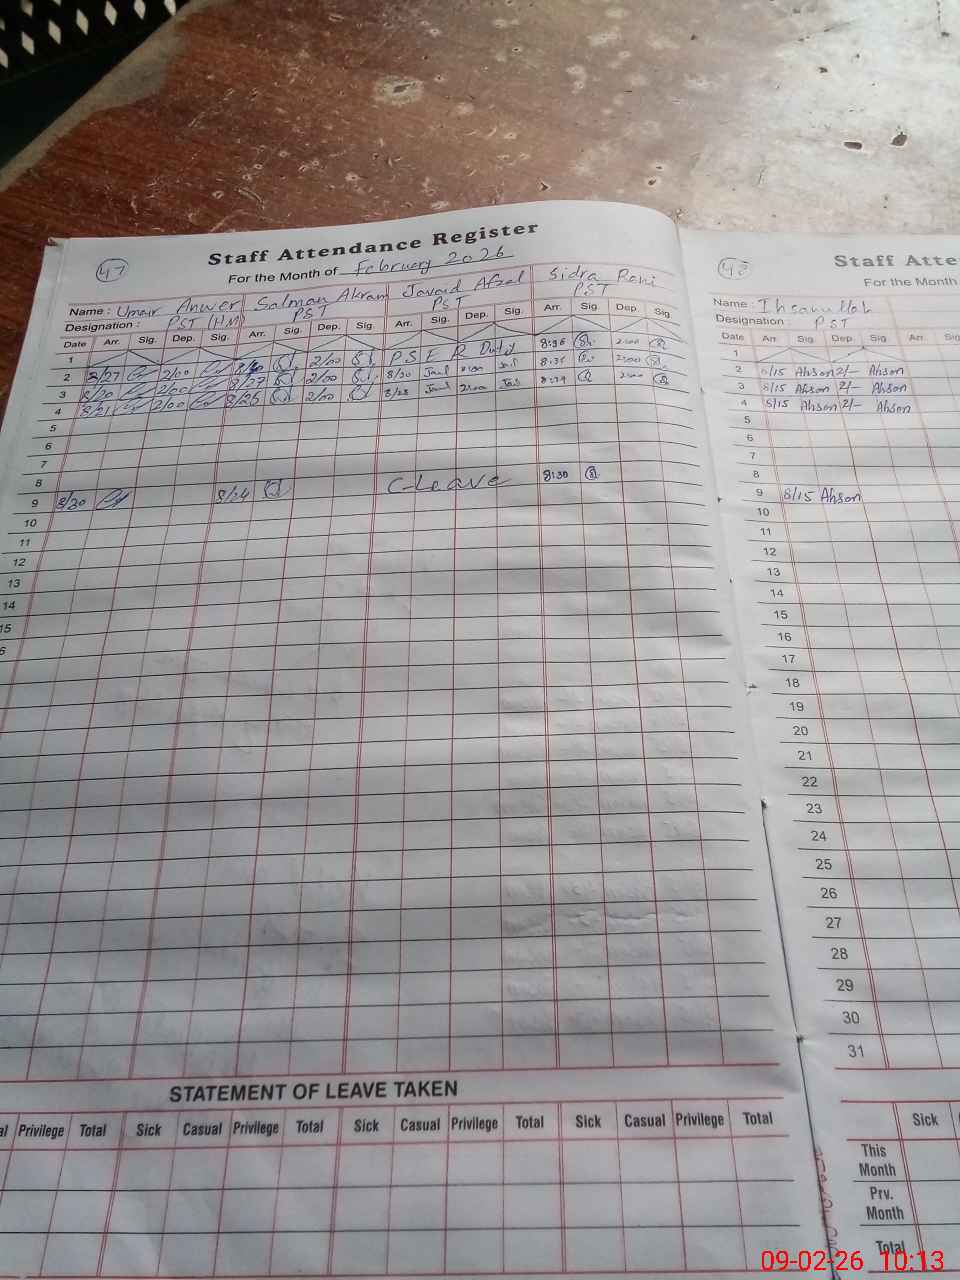 47
Staff Attendance Register
For the Month of February 2026
Name : Umair Anwer Salman Akram Javaid Afzal Sidra Rani
Designation : PST (HM) PST PST PST
Date Arr. Sig. Dep. Sig. Arr. Sig. Dep. Sig. Arr. Sig. Dep. Sig. Arr. Sig. Dep. Sig.
1
2 8/27 2/00 2/00 P S E R Duty 8:36 2:00
3 8/30 2/00 8/27 2/00 8/30 2:00 8:35 2:00
4 8/21 2/00 8/25 2/00 8/28 2:00 8:29 2:00
5
6
7
8
9 8/30 8/24 C-Leave 8:30
10
11
12
13
14
15
STATEMENT OF LEAVE TAKEN
Privilege Total Sick Casual Privilege Total Sick Casual Privilege Total Sick Casual Privilege Total
48
Staff Atte
For the Month
Name : Ihsanullah
Designation : PST
Date Arr. Sig. Dep. Sig. Arr. Sig.
1
2 8/15 Ahson 2/- Ahson
3 8/15 Ahson 2/- Ahson
4 8/15 Ahson 2/- Ahson
5
6
7
8
9 8/15 Ahson
10
11
12
13
14
15
16
17
18
19
20
21
22
23
24
25
26
27
28
29
30
31
Sick
This Month
Prv. Month
Total
09-02-26 10:13